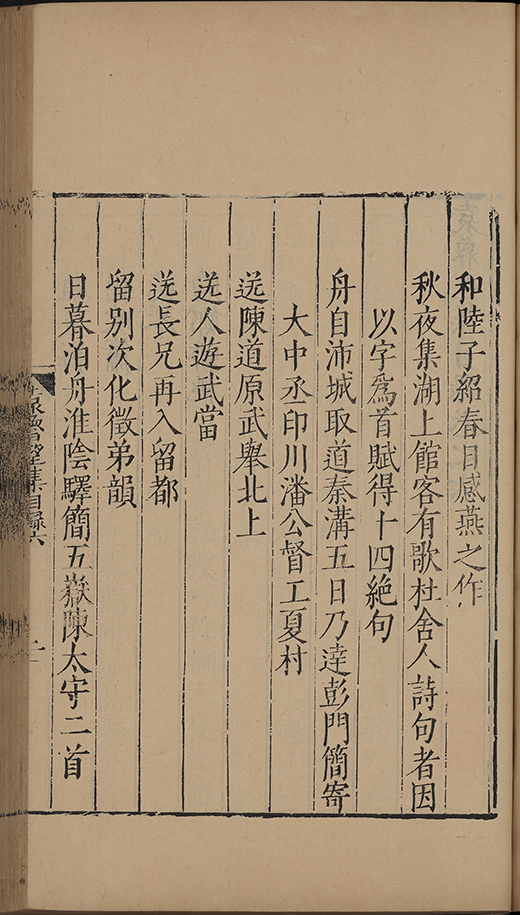 和陸子紹春日感燕之作
秋夜集湖上館客有歌杜舍人詩句者因
以字爲首賦得十四絶句
舟自沛城取道秦溝五日乃達彭門簡寄
大中丞印川潘公督工夏村
送陳道原武舉北上
送人遊武當
送長兄再入留都
留別次化徵弟韻
日暮泊舟淮陰驛簡五嶽陳太守二首
集目録六